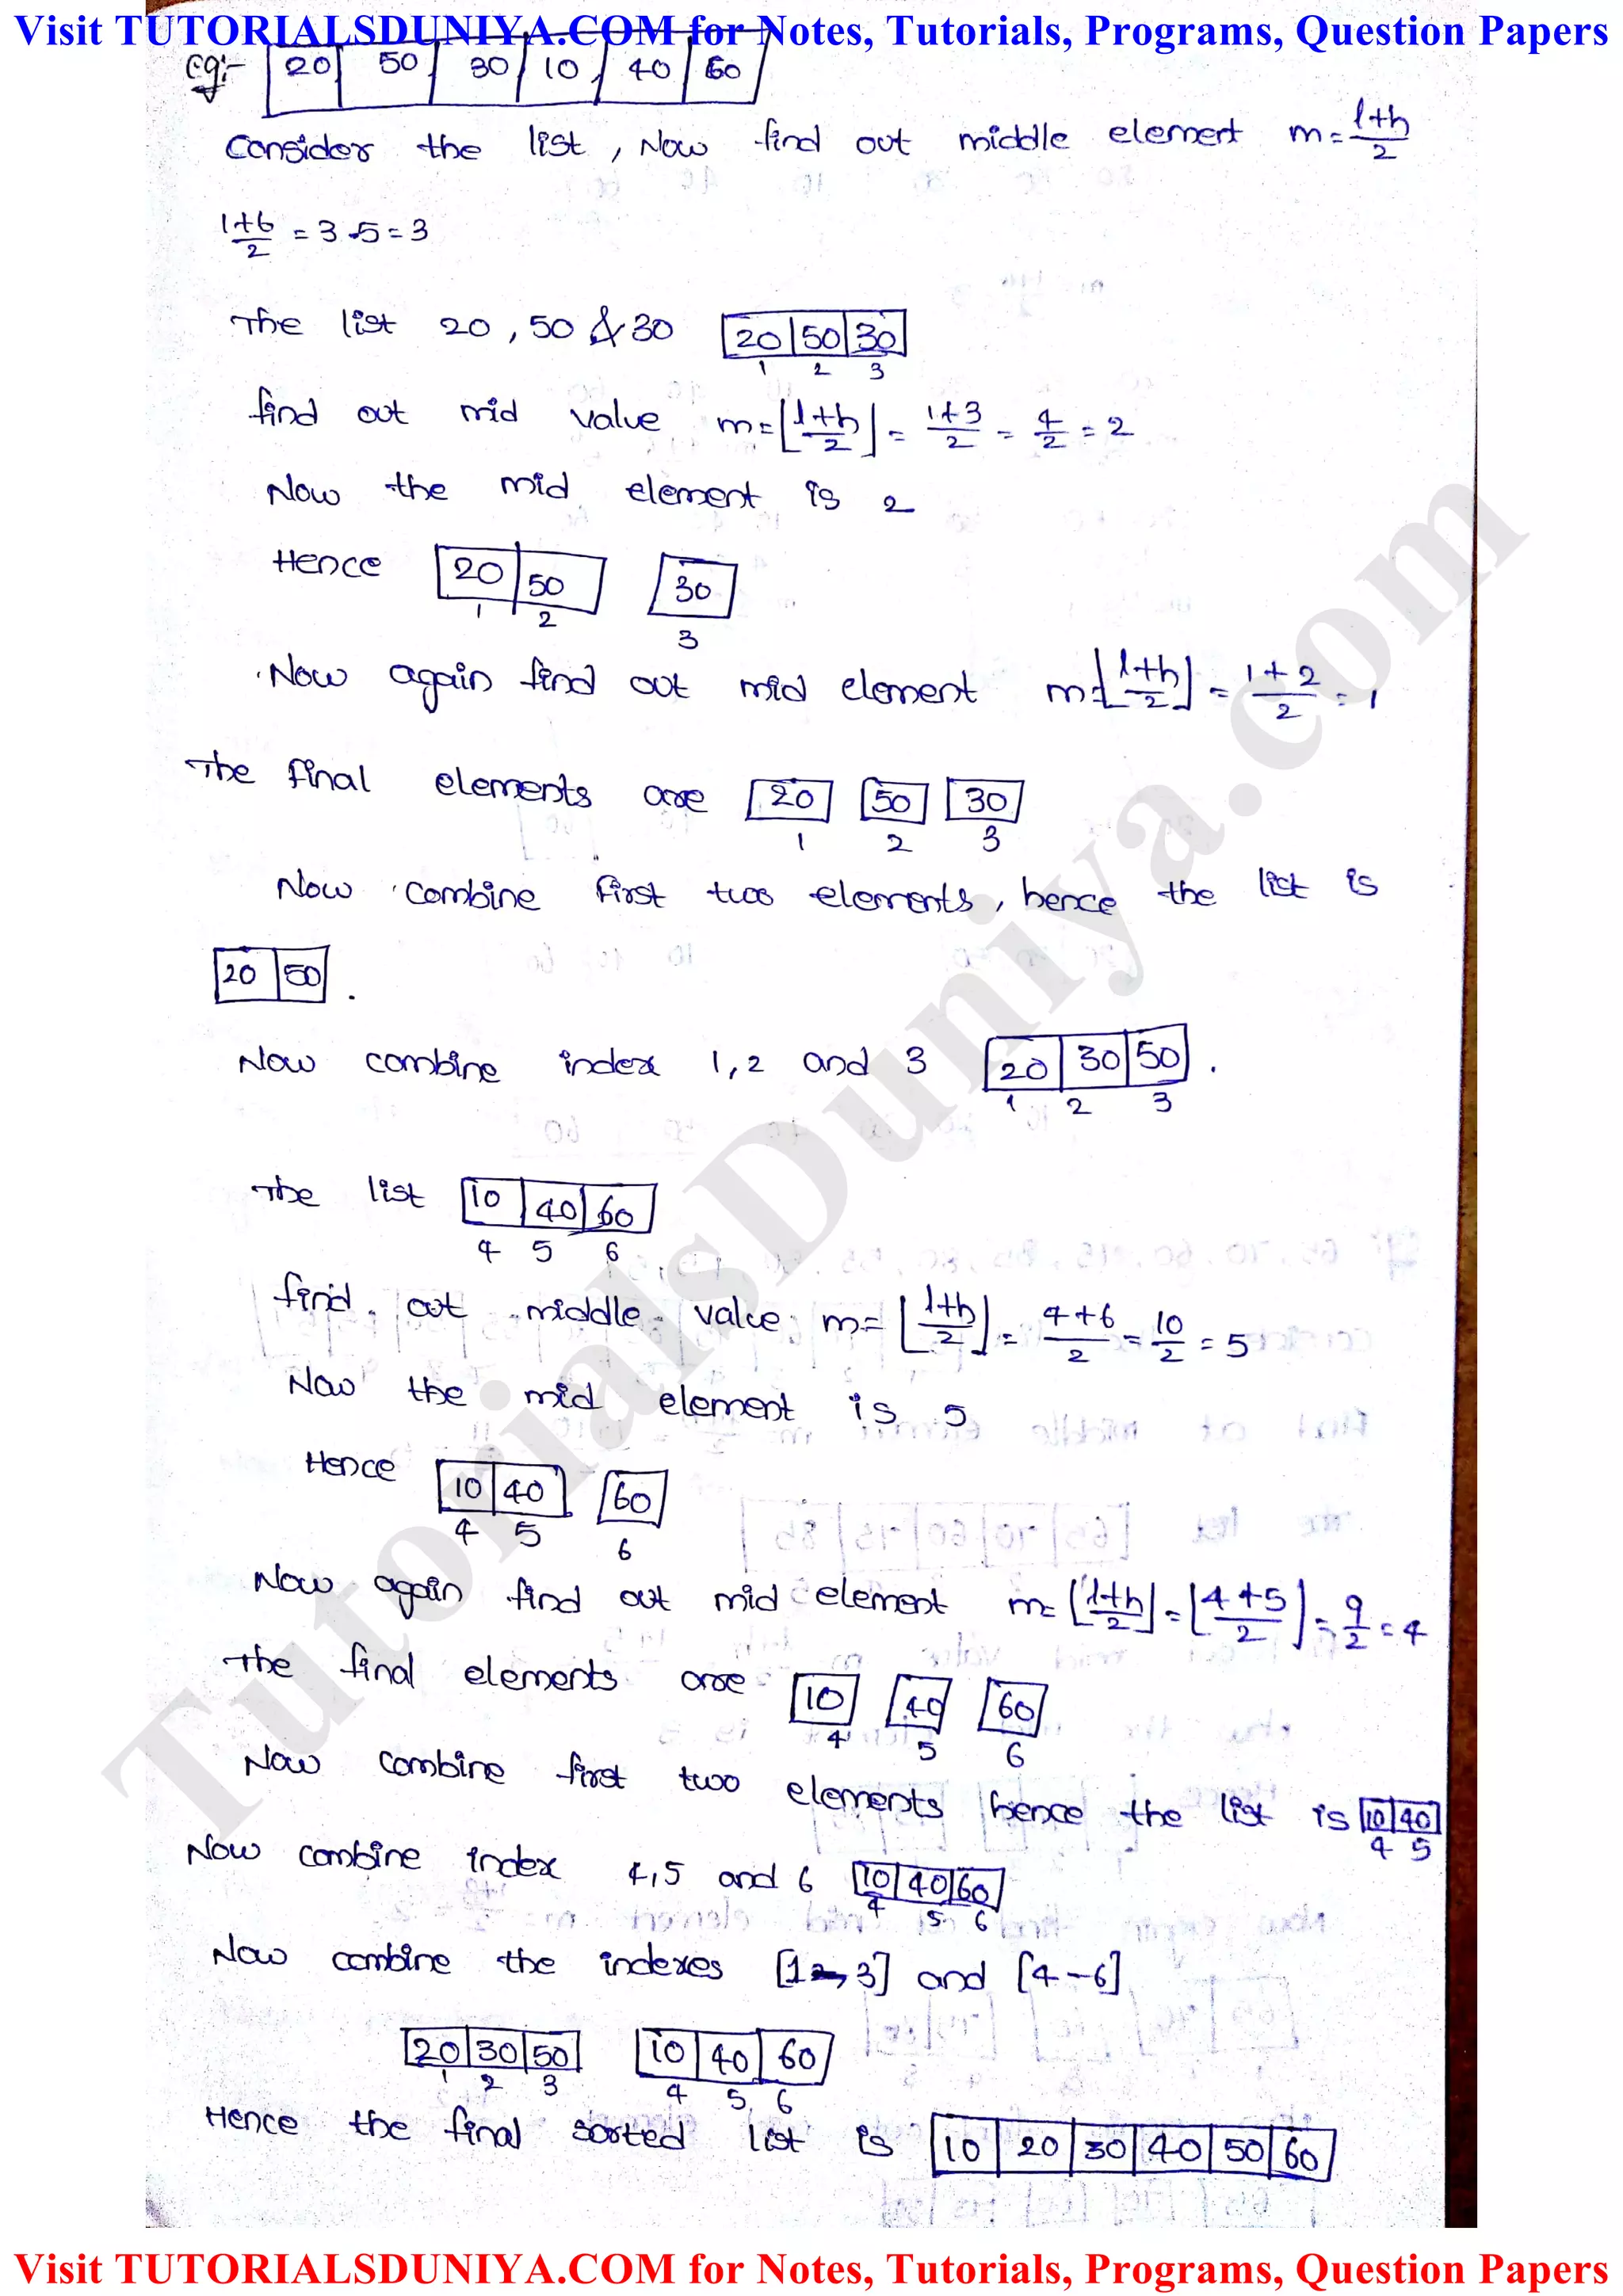 Visit TUTORIALSDUNIYA.COM for Notes, Tutorials, Programs, Question Papers
eg:- 20 50 30 10 40 60
Consider the list, Now find out middle element m = l+h/2
1+6/2 = 3.5 = 3
The list 20, 50 & 30 20 50 30
1 2 3
find out mid value m = ⌊l+h/2⌋ = 1+3/2 = 4/2 = 2
Now the mid element is 2
Hence 20 50 30
1 2 3
Now again find out mid element m = ⌊l+h/2⌋ = 1+2/2 = 1
The final elements are 20 50 30
1 2 3
Now combine first two elements, hence the list is
20 50 .
Now combine index 1,2 and 3 20 30 50 .
1 2 3
The list 10 40 60
4 5 6
find out middle value m = ⌊l+h/2⌋ = 4+6/2 = 10/2 = 5
Now the mid element is 5
Hence 10 40 60
4 5 6
Now again find out mid element m = ⌊l+h/2⌋ = ⌊4+5/2⌋ = 9/2 = 4
The final elements are 10 40 60
4 5 6
Now combine first two elements hence the list is 10 40
4 5
Now combine index 4,5 and 6 10 40 60
4 5 6
Now combine the indexes [1-3] and [4-6]
20 30 50 10 40 60
1 2 3 4 5 6
Hence the final sorted list is 10 20 30 40 50 60
TutorialsDuniya.com
Visit TUTORIALSDUNIYA.COM for Notes, Tutorials, Programs, Question Papers